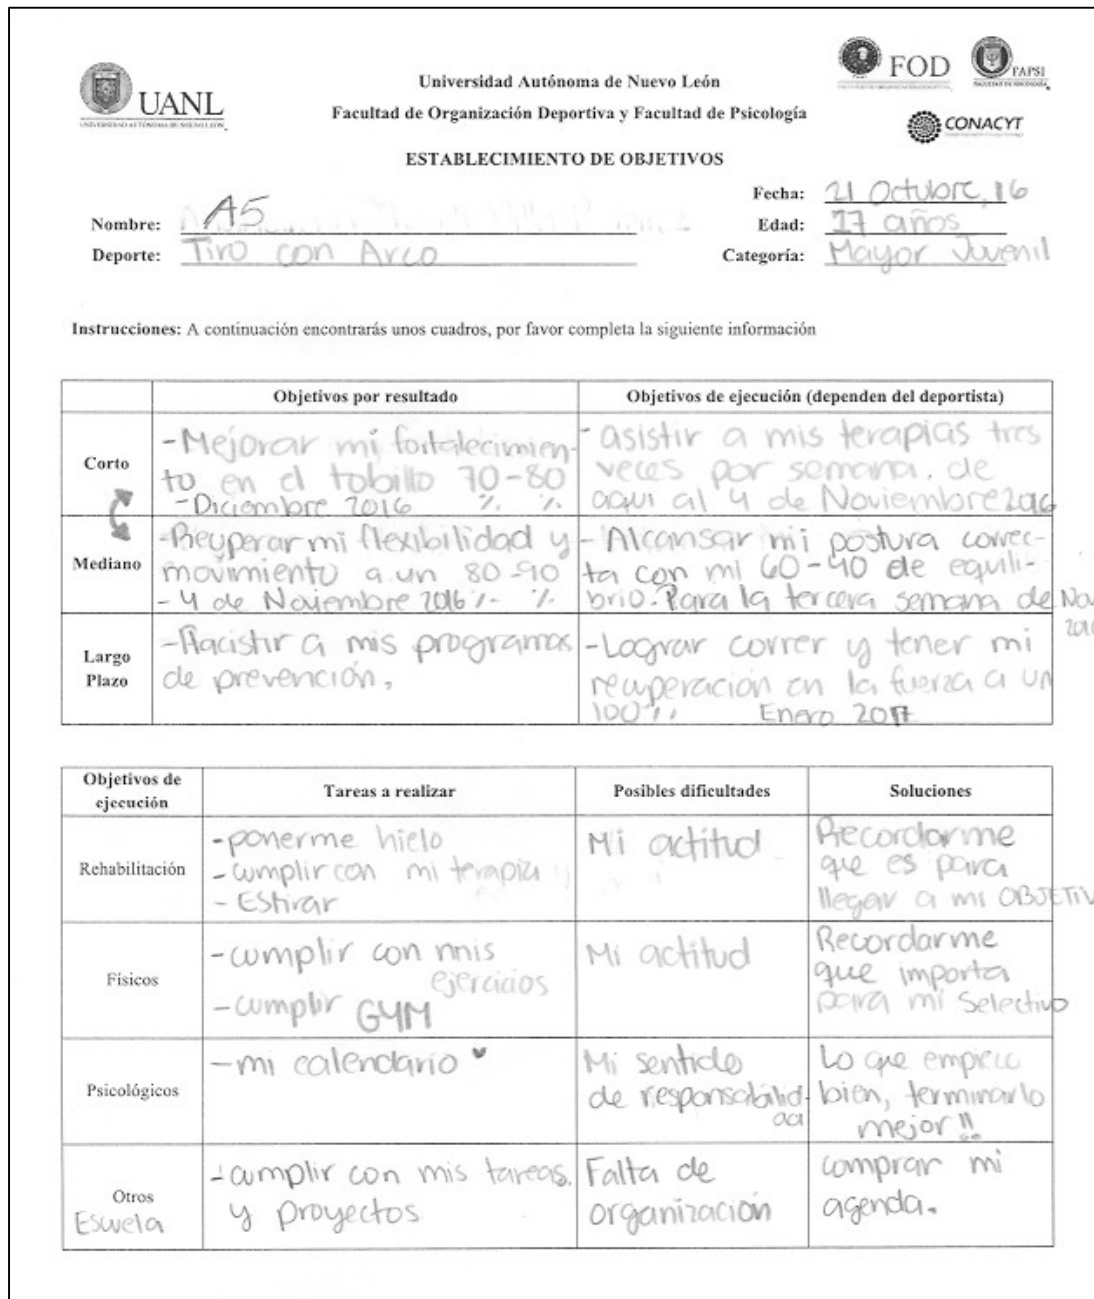 UANL
FOD
FAPSI
CONACYT
Universidad Autónoma de Nuevo León
Facultad de Organización Deportiva y Facultad de Psicología
ESTABLECIMIENTO DE OBJETIVOS
Fecha: 21 Octubre, 16
Nombre: A5
Edad: 17 años
Deporte: Tiro con Arco
Categoría: Mayor Juvenil
Instrucciones: A continuación encontrarás unos cuadros, por favor completa la siguiente información
Objetivos por resultado
Objetivos de ejecución (dependen del deportista)
Corto
-Mejorar mi fortalecimien-
to en el tobillo 70-80
-Diciembre 2016 % %
- asistir a mis terapias tres
veces por semana, de
aqui al 4 de Noviembre 2016
Mediano
-Recuperar mi flexibilidad y
movimiento a un 80-90
- 4 de Noviembre 2016 % %
- Alcansar mi postura correc-
ta con mi 60-40 de equili-
brio. Para la tercera semana de Nov
2016
Largo
Plazo
-Hacistir a mis programas
de prevención.
-Lograr correr y tener mi
recuperación en la fuerza a un
100% Enero 2017
Objetivos de
ejecución
Tareas a realizar
Posibles dificultades
Soluciones
Rehabilitación
-ponerme hielo
-cumplir con mi terapia
- Estirar
Mi actitud
Recordarme
que es para
llegar a mi OBJETIV
Físicos
-cumplir con mis
ejercicios
-cumplir GYM
Mi actitud
Recordarme
que importa
para mi Selectivo
Psicológicos
-mi calendario ♥
Mi sentido
de responsabilid-
ad
Lo que empiezo
bien, terminarlo
mejor!!
Otros
Escuela
-cumplir con mis tareas.
y proyectos
Falta de
organización
comprar mi
agenda.